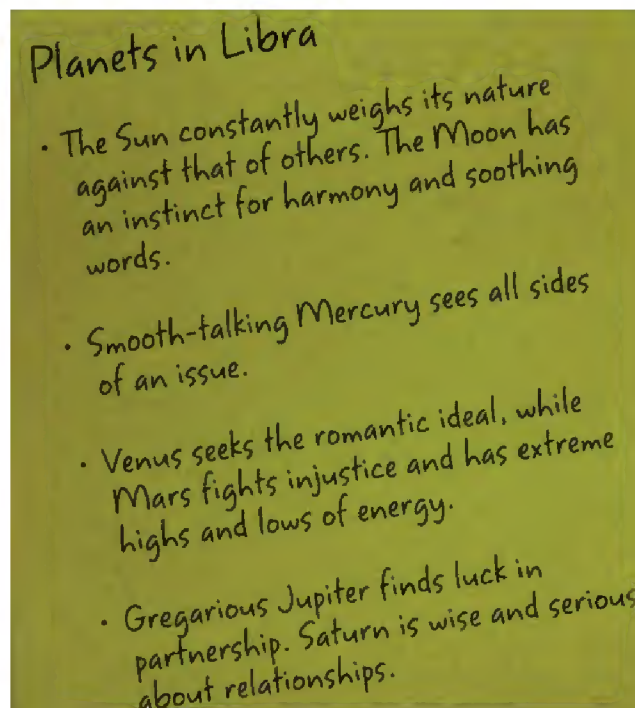 Planets in Libra
• The Sun constantly weighs its nature
against that of others. The Moon has
an instinct for harmony and soothing
words.
• Smooth-talking Mercury sees all sides
of an issue.
• Venus seeks the romantic ideal, while
Mars fights injustice and has extreme
highs and lows of energy.
• Gregarious Jupiter finds luck in
partnership. Saturn is wise and serious
about relationships.